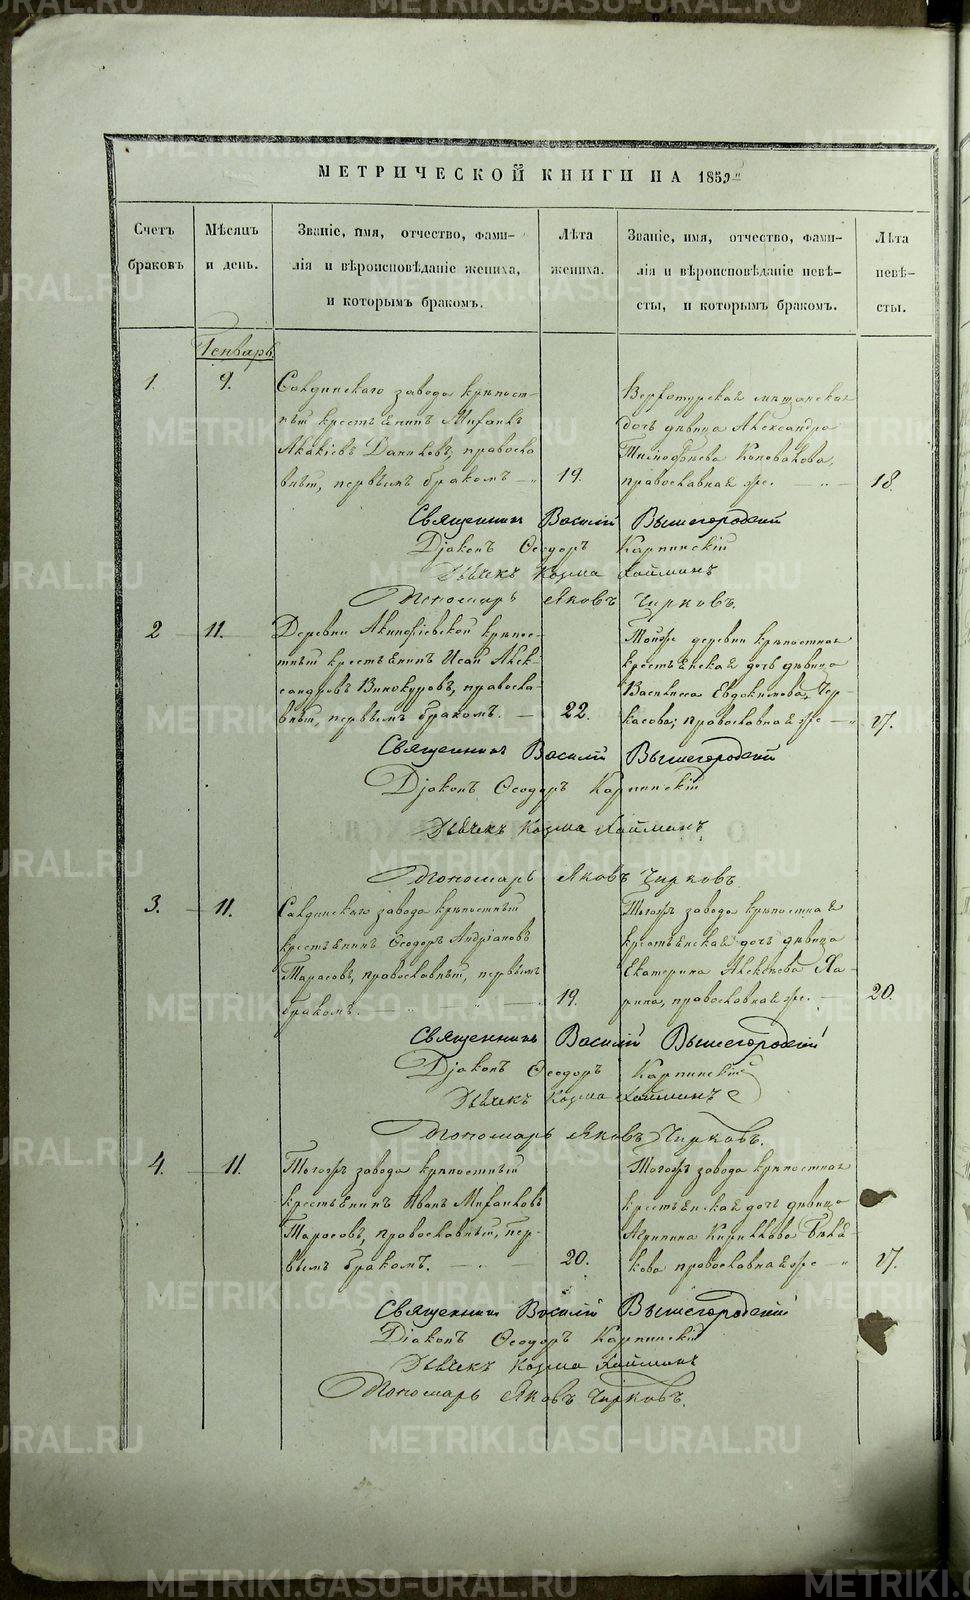 МЕТРИЧЕСКОЙ КНИГИ НА 1859
Счетъ браковъ
Мѣсяцъ и день.
Званіе, имя, отчество, фами-
лія и вѣроисповѣданіе жениха,
и которымъ бракомъ.
Лѣта жениха.
Званіе, имя, отчество, фами-
лія и вѣроисповѣданіе невѣ-
сты, и которымъ бракомъ.
Лѣта невѣ-
сты.
Генварь
1. 9.
Салдинскаго завода крѣпост-
ный крестьянинъ Михаилъ
Акакіевъ Даниловъ, правосла
вный, первымъ бракомъ 19.
Верхотурская мѣщанская
дочь дѣвица Александра
Тимофѣева Коновалова,
православная же. 18.
Священникъ Василій Вышегородскій
Діаконъ Ѳеодоръ Карпинскій
Дьячекъ Козма Хайминъ
Пономарь Яковъ Чирковъ.
2 11.
Деревни Акинфіевской крѣпос-
тный крестьянинъ Исай Алек-
сандровъ Винокуровъ, правосла-
вный, первымъ бракомъ. 22.
Тойже деревни крѣпостная
крестьянская дочь дѣвица
Василиса Евдокимова Чер-
касова, православная же 17.
Священникъ Василій Вышегородскій
Діаконъ Ѳеодоръ Карпинскій
Дьячекъ Козма Хайминъ
Пономарь Яковъ Чирковъ
3. 11.
Салдинскаго завода крѣпостный
крестьянинъ Ѳеодоръ Андріановъ
Тарасовъ, православный, первымъ
бракомъ. 19.
Тогожъ завода крѣпостная
крестьянская дочь дѣвица
Екатерина Алексѣева Ха-
рина, православная же. 20.
Священникъ Василій Вышегородскій
Діаконъ Ѳеодоръ Карпинскій
Дьячекъ Козма Хайминъ
Пономарь Яковъ Чирковъ.
4. 11.
Тогожъ завода крѣпостный
крестьянинъ Иванъ Михаиловъ
Тарасовъ, православный, пер-
вымъ бракомъ. 20.
Тогожъ завода крѣпостная
крестьянская дочь дѣвица
Агрипина Кирилова Бѣля-
кова православная же 17.
Священникъ Василій Вышегородскій
Діаконъ Ѳеодоръ Карпинскій
Дьячекъ Козма Хайминъ
Пономарь Яковъ Чирковъ.
METRIKI.GASO-URAL.RU